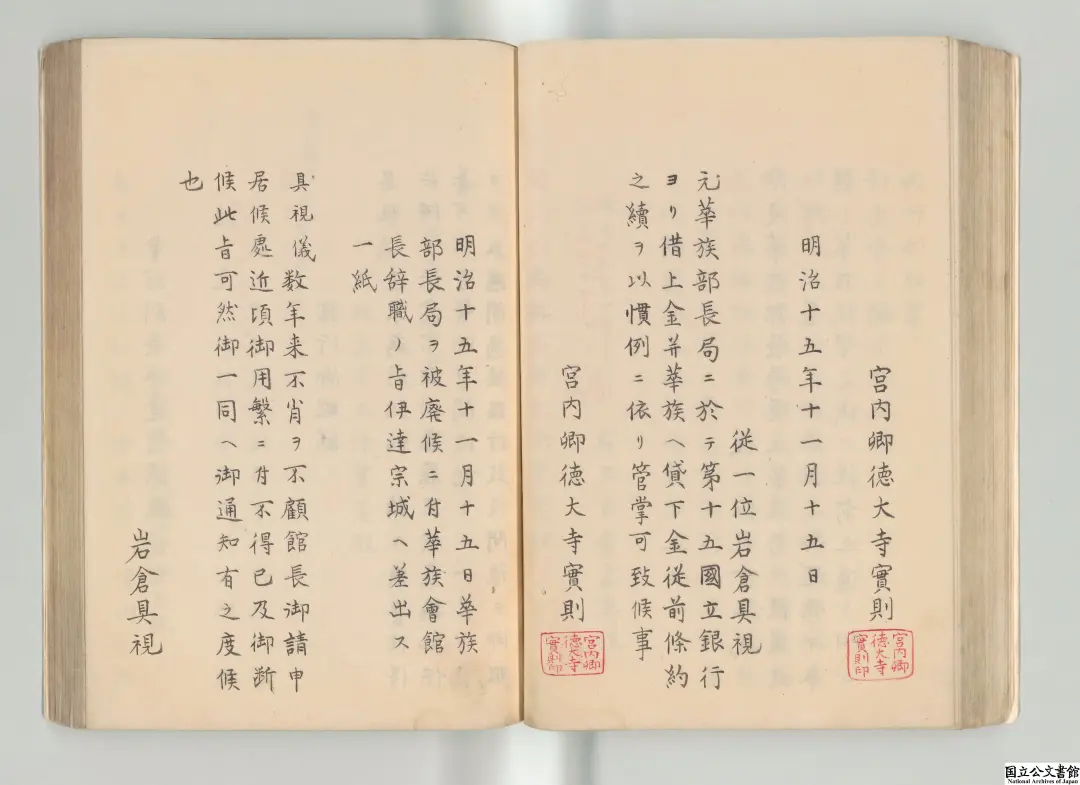 宮内卿徳大寺實則
宮内卿
徳大寺
實則印
明治十五年十一月十五日
従一位岩倉具視
元華族部長局ニ於テ第十五國立銀行
ヨリ借上金并華族ヘ貸下金従前條約
之續ヲ以慣例ニ依リ管掌可致候事
宮内卿徳大寺實則
宮内卿
徳大寺
實則印
明治十五年十一月十五日華族
部長局ヲ被廃候ニ付華族會館
長辞職ノ旨伊達宗城ヘ差出ス
一紙
具視儀数年来不肖ヲ不顧館長御請申
居候處近頃御用繁ニ付不得已及御断
候此旨可然御一同ヘ御通知有之度候
也
岩倉具視
国立公文書館
National Archives of Japan